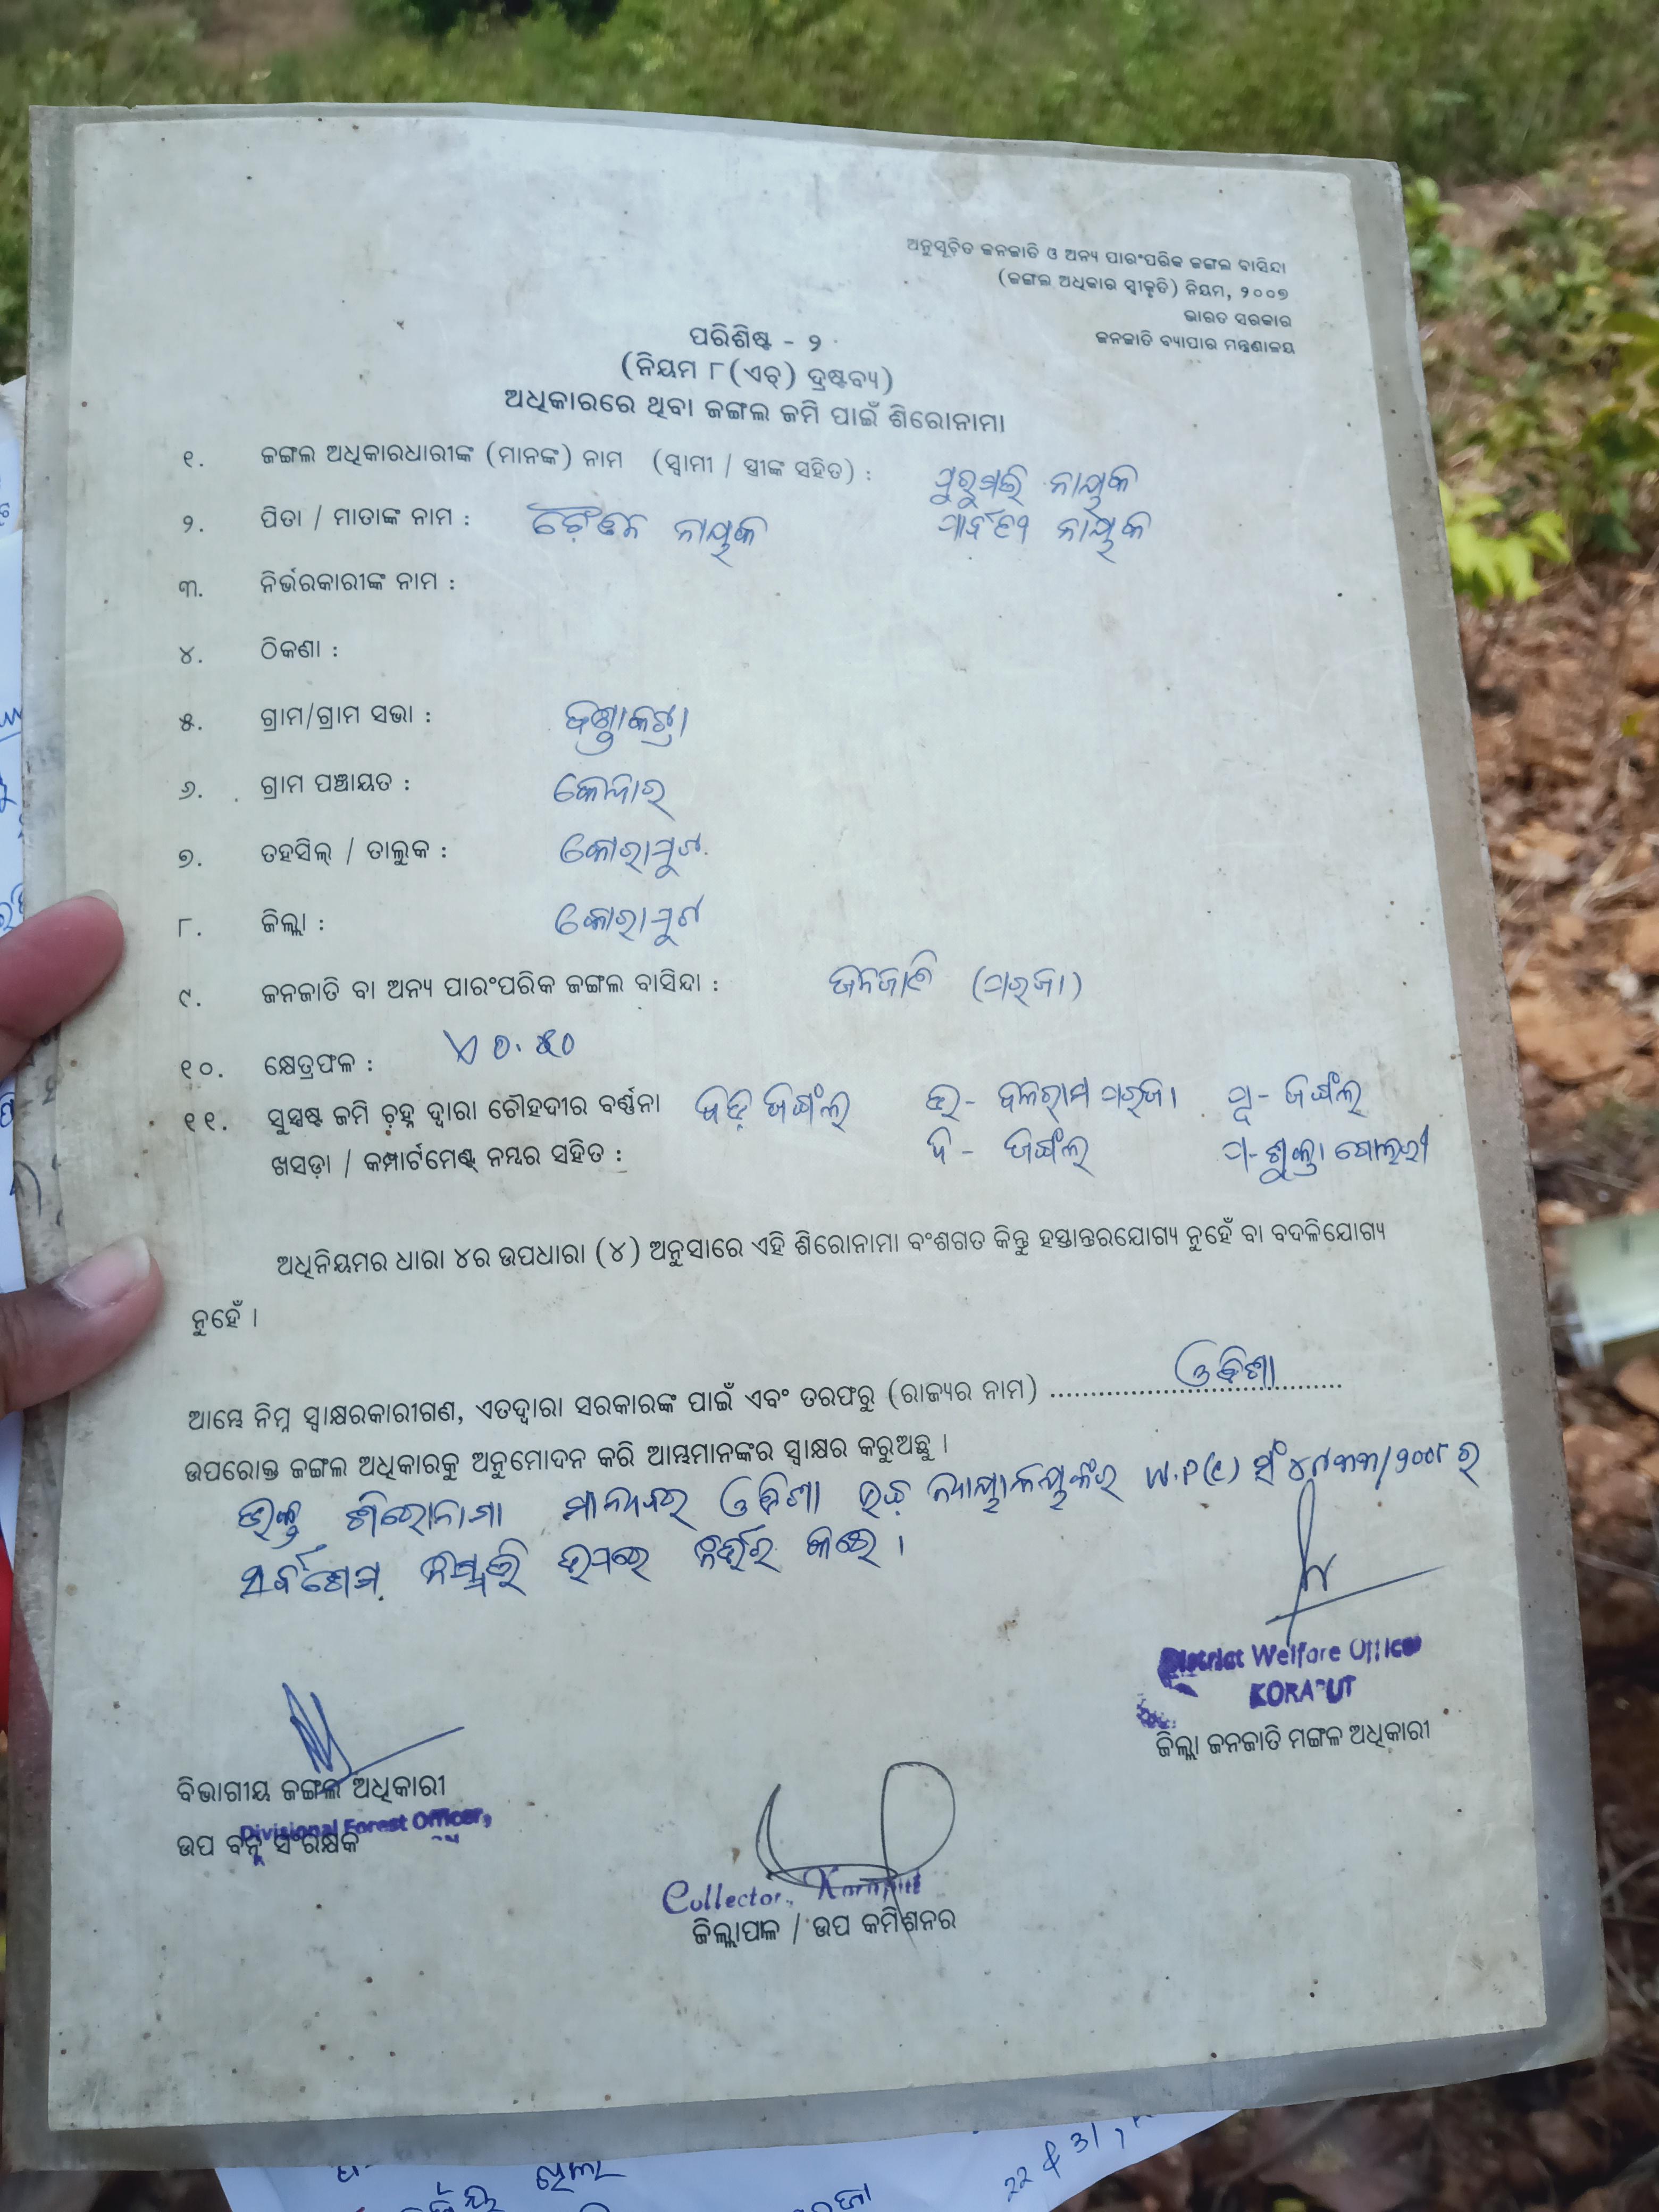 ଅନୁସୂଚିତ ଜନଜାତି ଓ ଅନ୍ୟ ପାରଂପରିକ ଜଙ୍ଗଲ ବାସିନ୍ଦା
(ଜଙ୍ଗଲ ଅଧିକାର ସ୍ୱୀକୃତି) ନିୟମ, ୨୦୦୭
ଭାରତ ସରକାର
ଜନଜାତି ବ୍ୟାପାର ମନ୍ତ୍ରଣାଳୟ
ପରିଶିଷ୍ଟ - ୨
(ନିୟମ ୮(ଏଚ୍) ଦ୍ରଷ୍ଟବ୍ୟ)
ଅଧିକାରରେ ଥିବା ଜଙ୍ଗଲ ଜମି ପାଇଁ ଶିରୋନାମା
୧. ଜଙ୍ଗଲ ଅଧିକାରଧାରୀଙ୍କ (ମାନଙ୍କ) ନାମ (ସ୍ୱାମୀ / ସ୍ତ୍ରୀଙ୍କ ସହିତ) : ନାୟକ
୨. ପିତା / ମାତାଙ୍କ ନାମ : ନାୟକ ନାୟକ
୩. ନିର୍ଭରକାରୀଙ୍କ ନାମ :
୪. ଠିକଣା :
୫. ଗ୍ରାମ/ଗ୍ରାମ ସଭା :
୬. ଗ୍ରାମ ପଞ୍ଚାୟତ :
୭. ତହସିଲ୍ / ତାଲୁକ : କୋରାପୁଟ
୮. ଜିଲ୍ଲା : କୋରାପୁଟ
୯. ଜନଜାତି ବା ଅନ୍ୟ ପାରଂପରିକ ଜଙ୍ଗଲ ବାସିନ୍ଦା : ଜନଜାତି (ପରଜା)
୧୦. କ୍ଷେତ୍ରଫଳ : ଏ ୦.୫୦
୧୧. ସୁସ୍ପଷ୍ଟ ଜମି ଚିହ୍ନ ଦ୍ୱାରା ଚୌହଦୀର ବର୍ଣ୍ଣନା ଜଙ୍ଗଲ ଉ- ବଳରାମ ପରଜା ପୂ- ଜଙ୍ଗଲ
ଖସଡ଼ା / କମ୍ପାର୍ଟମେଣ୍ଟ୍ ନମ୍ବର ସହିତ : ଦ - ଜଙ୍ଗଲ ପ-
ଅଧିନିୟମର ଧାରା ୪ର ଉପଧାରା (୪) ଅନୁସାରେ ଏହି ଶିରୋନାମା ବଂଶଗତ କିନ୍ତୁ ହସ୍ତାନ୍ତରଯୋଗ୍ୟ ନୁହେଁ ବା ବଦଳିଯୋଗ୍ୟ
ନୁହେଁ ।
ଆମ୍ଭେ ନିମ୍ନ ସ୍ୱାକ୍ଷରକାରୀଗଣ, ଏତଦ୍ୱାରା ସରକାରଙ୍କ ପାଇଁ ଏବଂ ତରଫରୁ (ରାଜ୍ୟର ନାମ) ........ ଓଡ଼ିଶା ........
ଉପରୋକ୍ତ ଜଙ୍ଗଲ ଅଧିକାରକୁ ଅନୁମୋଦନ କରି ଆମ୍ଭମାନଙ୍କର ସ୍ୱାକ୍ଷର କରୁଅଛୁ ।
ଉକ୍ତ ଶିରୋନାମା ମାନ୍ୟବର ଓଡ଼ିଶା ଉଚ୍ଚ ନ୍ୟାୟାଳୟଙ୍କର W.P(c) ସଂ ୪୯୩୩/୨୦୦୮ ର
ସର୍ବଶେଷ ନିଷ୍ପତ୍ତି ଉପରେ ନିର୍ଭର କରେ ।
District Welfare Officer
KORAPUT
ଜିଲ୍ଲା ଜନଜାତି ମଙ୍ଗଳ ଅଧିକାରୀ
ବିଭାଗୀୟ ଜଙ୍ଗଲ ଅଧିକାରୀ
Divisional Forest Officer,
ଉପ ବନ ସଂରକ୍ଷକ
Collector, Koraput
ଜିଲ୍ଲାପାଳ / ଉପ କମିଶନର